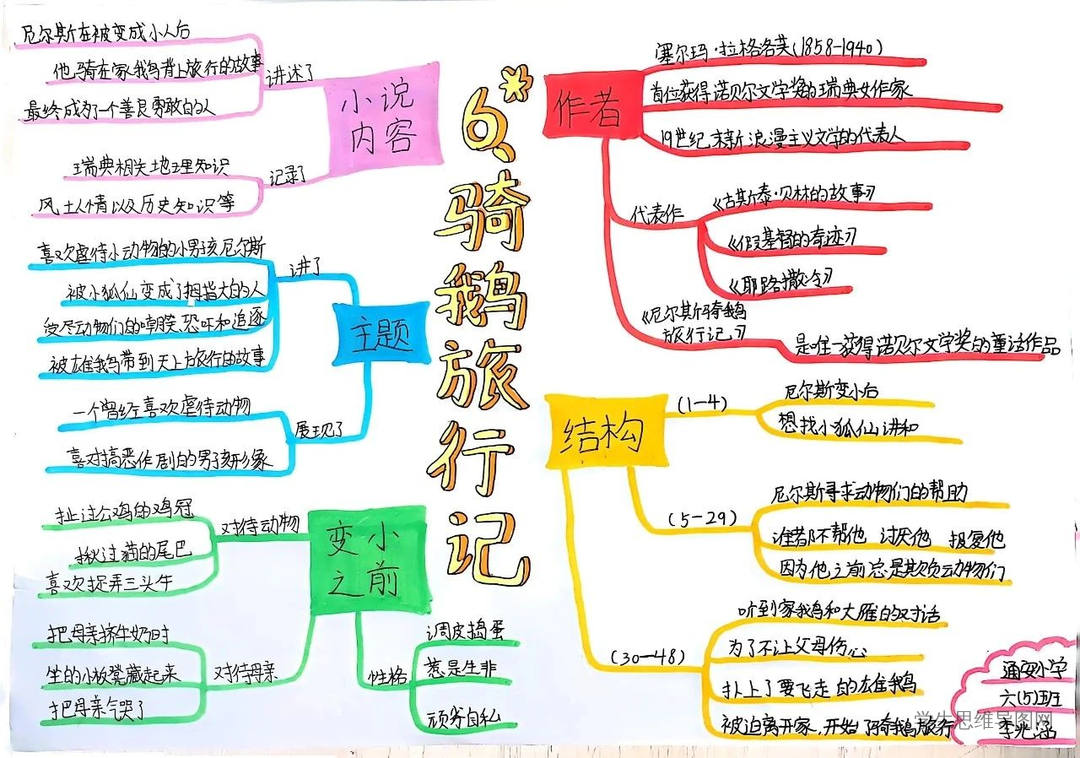 6、*骑鹅旅行记
小说
内容
讲述了
尼尔斯在被变成小人后
他骑在家鹅背上旅行的故事
最终成为了一个善良勇敢的人
记录了
瑞典相关地理知识
风土人情以及历史知识等
主题
讲了
喜欢虐待小动物的小男孩尼尔斯
被小狐仙变成了拇指大的人
受尽动物们的嘲朘、恐吓和追逐
被雄鹅带到天上旅行的故事
展现了
一个曾经喜欢虐待动物
喜对搞恶作剧的男孩形象
变小
之前
对待动物
扯过公鸡的鸡冠
揪过猫的尾巴
喜欢捉弄三头牛
对待母亲
把母亲挤牛奶时
坐的小板凳藏起来
把母亲气哭了
性格
调皮捣蛋
惹是生非
顽劣自私
作者
塞尔玛·拉格洛芙(1858-1940)
首位获得诺贝尔文学奖的瑞典女作家
19世纪末新浪漫主义文学的代表人
代表作
《古斯泰·贝林的故事》
《假基督的奇迹》
《耶路撒冷》
《尼尔斯骑鹅
旅行记》
是唯一获得诺贝尔文学奖的童话作品
结构
(1-4)
尼尔斯变小后
想找小狐仙讲和
(5-29)
尼尔斯寻求动物们的帮助
谁都不帮他 讨厌他 报复他
因为他之前总是欺负动物们
(30-48)
听到家鹅和大雁的对话
为了不让父母伤心
扑上了要飞走的雄鹅
被迫离开家,开始了骑鹅旅行
涌安小学
六(5)班
李光涵
学生思维导图网